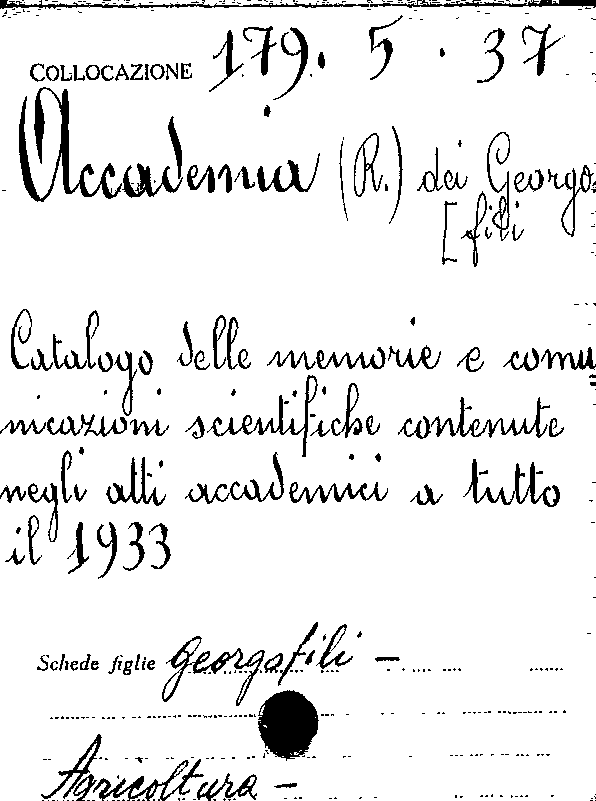 COLLOCAZIONE 179. 5 . 37
Accademia (R.) dei Georgo=
[fili
Catalogo delle memorie e comu=
nicazioni scientifiche contenute
negli atti accademici a tutto
il 1933
Schede figlie Georgofili —
Agricoltura —